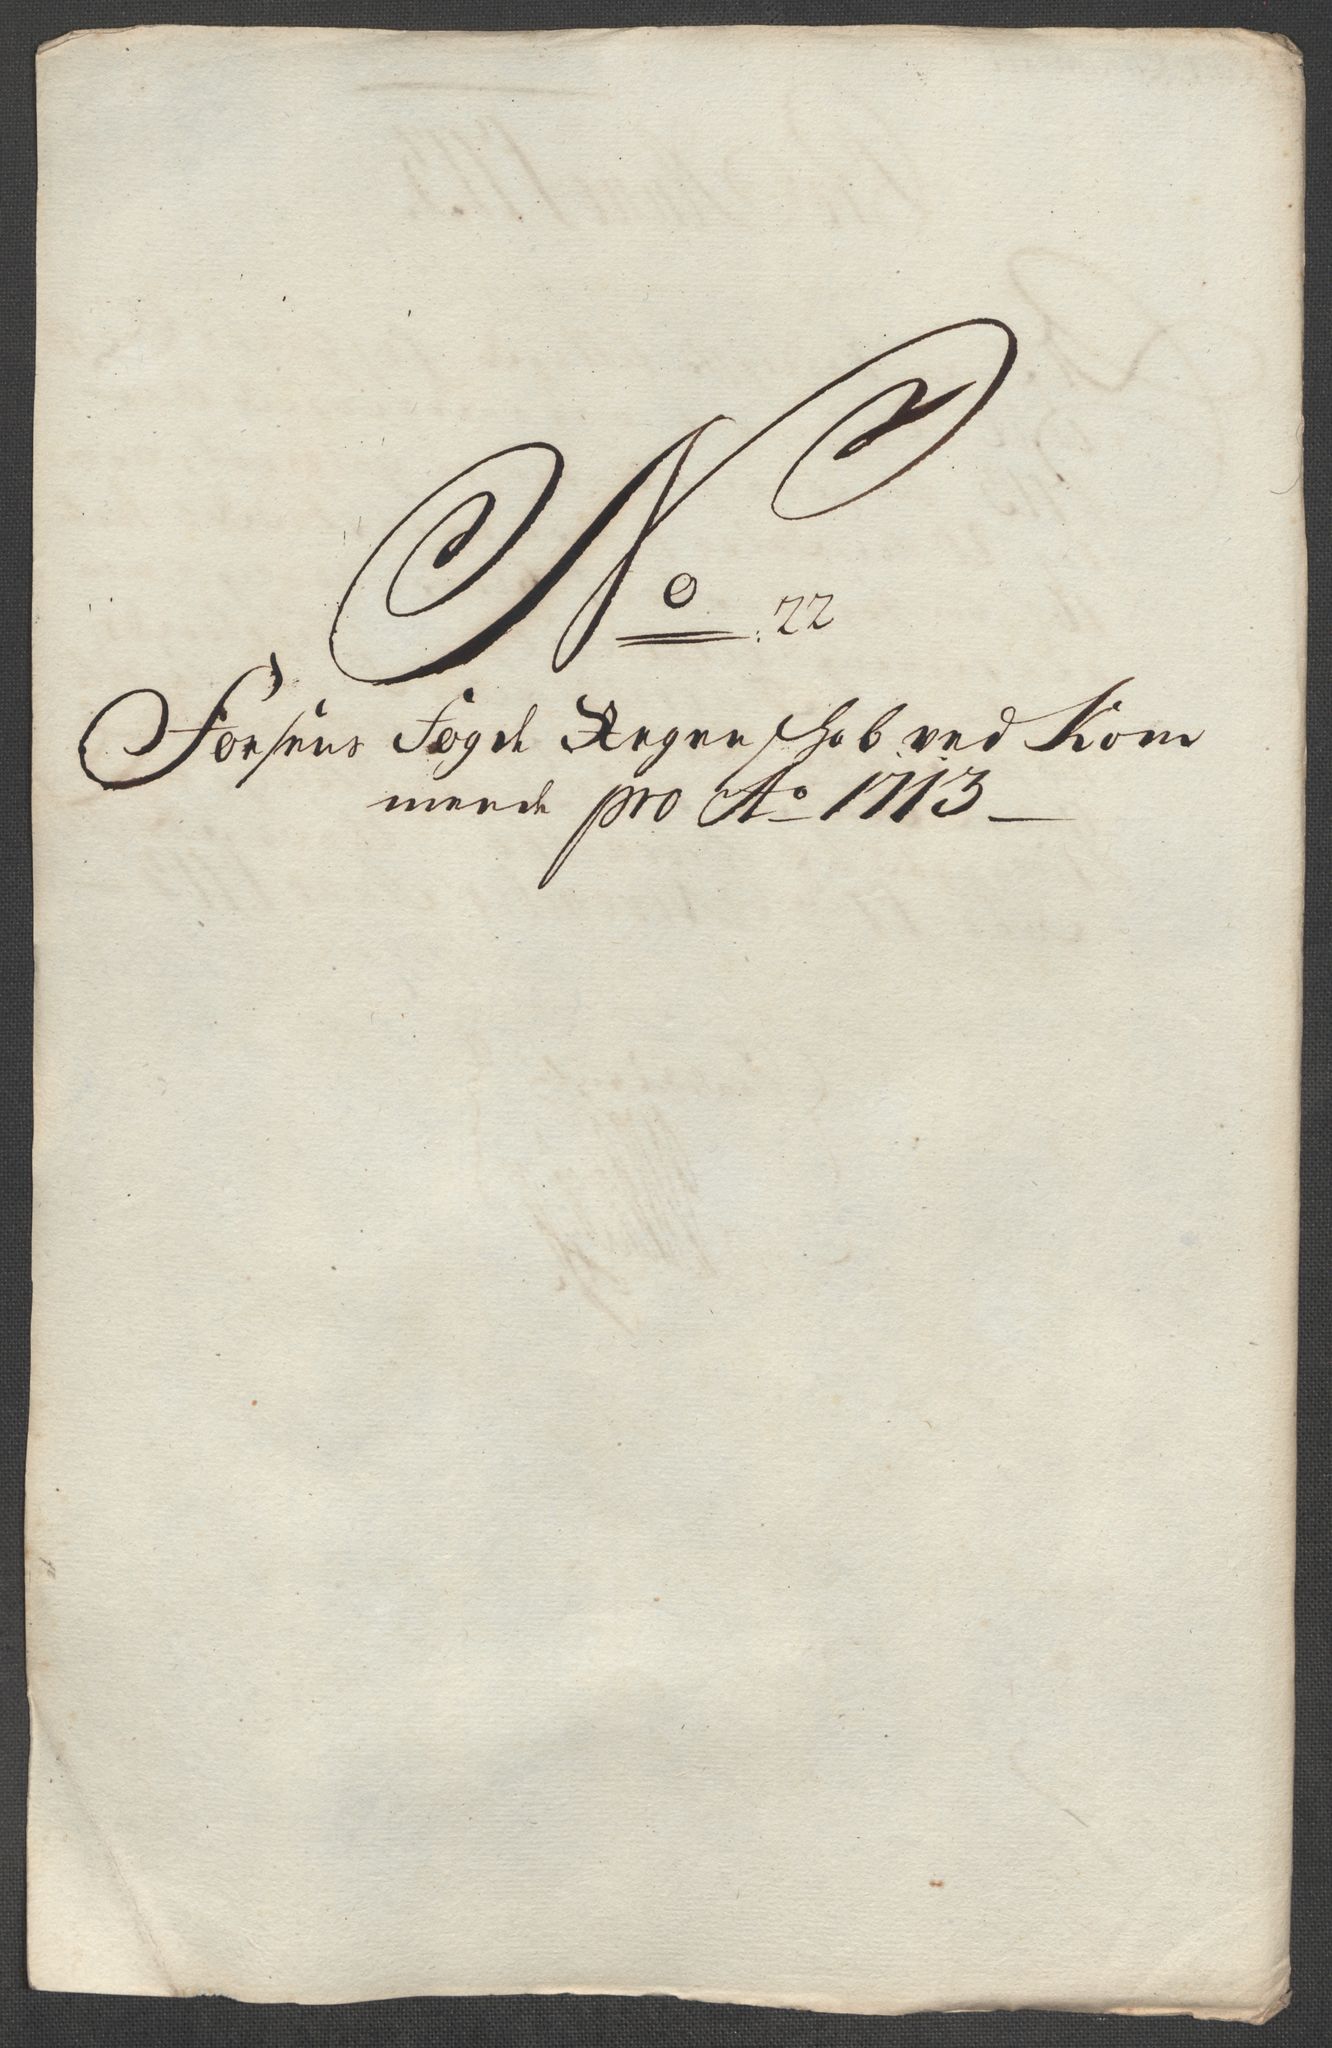 No. 22
Forsens Fogde Regenskab ved Kom
mende pro Ao 1713